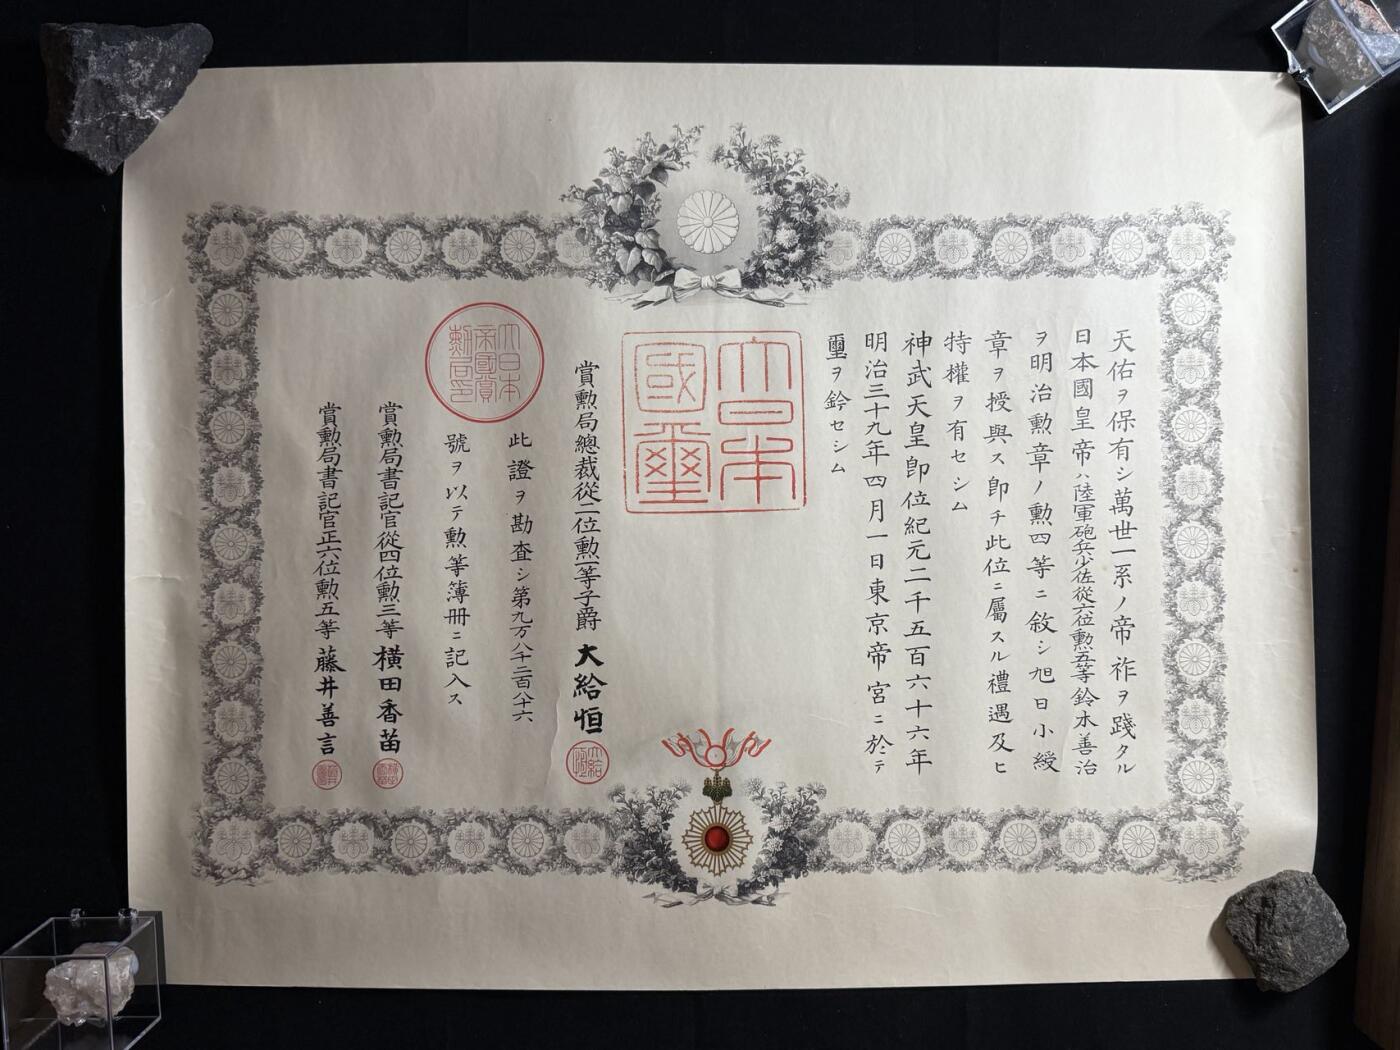 天佑ヲ保有シ萬世一系ノ帝祚ヲ踐タル
日本國皇帝ハ陸軍砲兵少佐從六位勲五等鈴木善治
ヲ明治勲章ノ勲四等ニ敘シ旭日小綬
章ヲ授與ス即チ此位ニ屬スル禮遇及ヒ
特權ヲ有セシム
神武天皇即位紀元二千五百六十六年
明治三十九年四月一日東京帝宮ニ於テ
璽ヲ鈐セシム
大日本國璽
賞勲局總裁從二位勲一等子爵大給恒
大給恒
大日本帝國賞勲局印
此證ヲ勘査シ第九万八千二百八十六
號ヲ以テ勲等簿册ニ記入ス
賞勲局書記官從四位勲三等横田香苗
賞勲局書記官正六位勲五等藤井善言